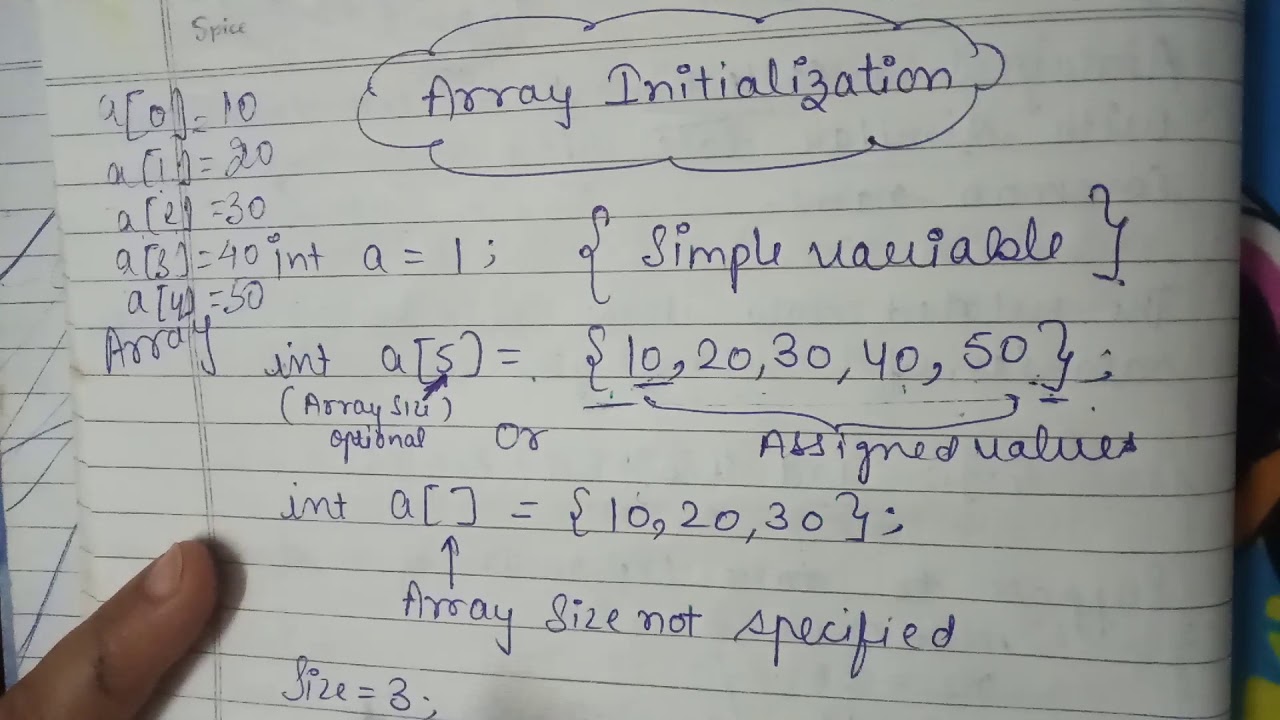 Spice
Array Initialization
a[0] = 10
a[1] = 20
a[2] = 30
a[3] = 40
a[4] = 50
int a = 1; { Simple variable }
Array
int a[5] = {10, 20, 30, 40, 50};
(Array Size)
optional
Or
Assigned values
int a[] = {10, 20, 30};
Array Size not specified
Size = 3;